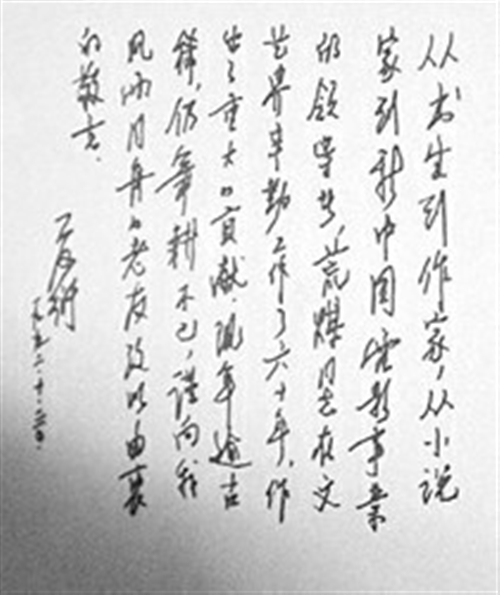 从书生到作家,从小说
家到新中国电影事业
的领导者,荒煤同志在文
艺界辛勤工作了六十年,作
出了重大的贡献。现年逾古
稀,仍笔耕不已,谨向我
风雨同舟的老友致以由衷
的敬意。